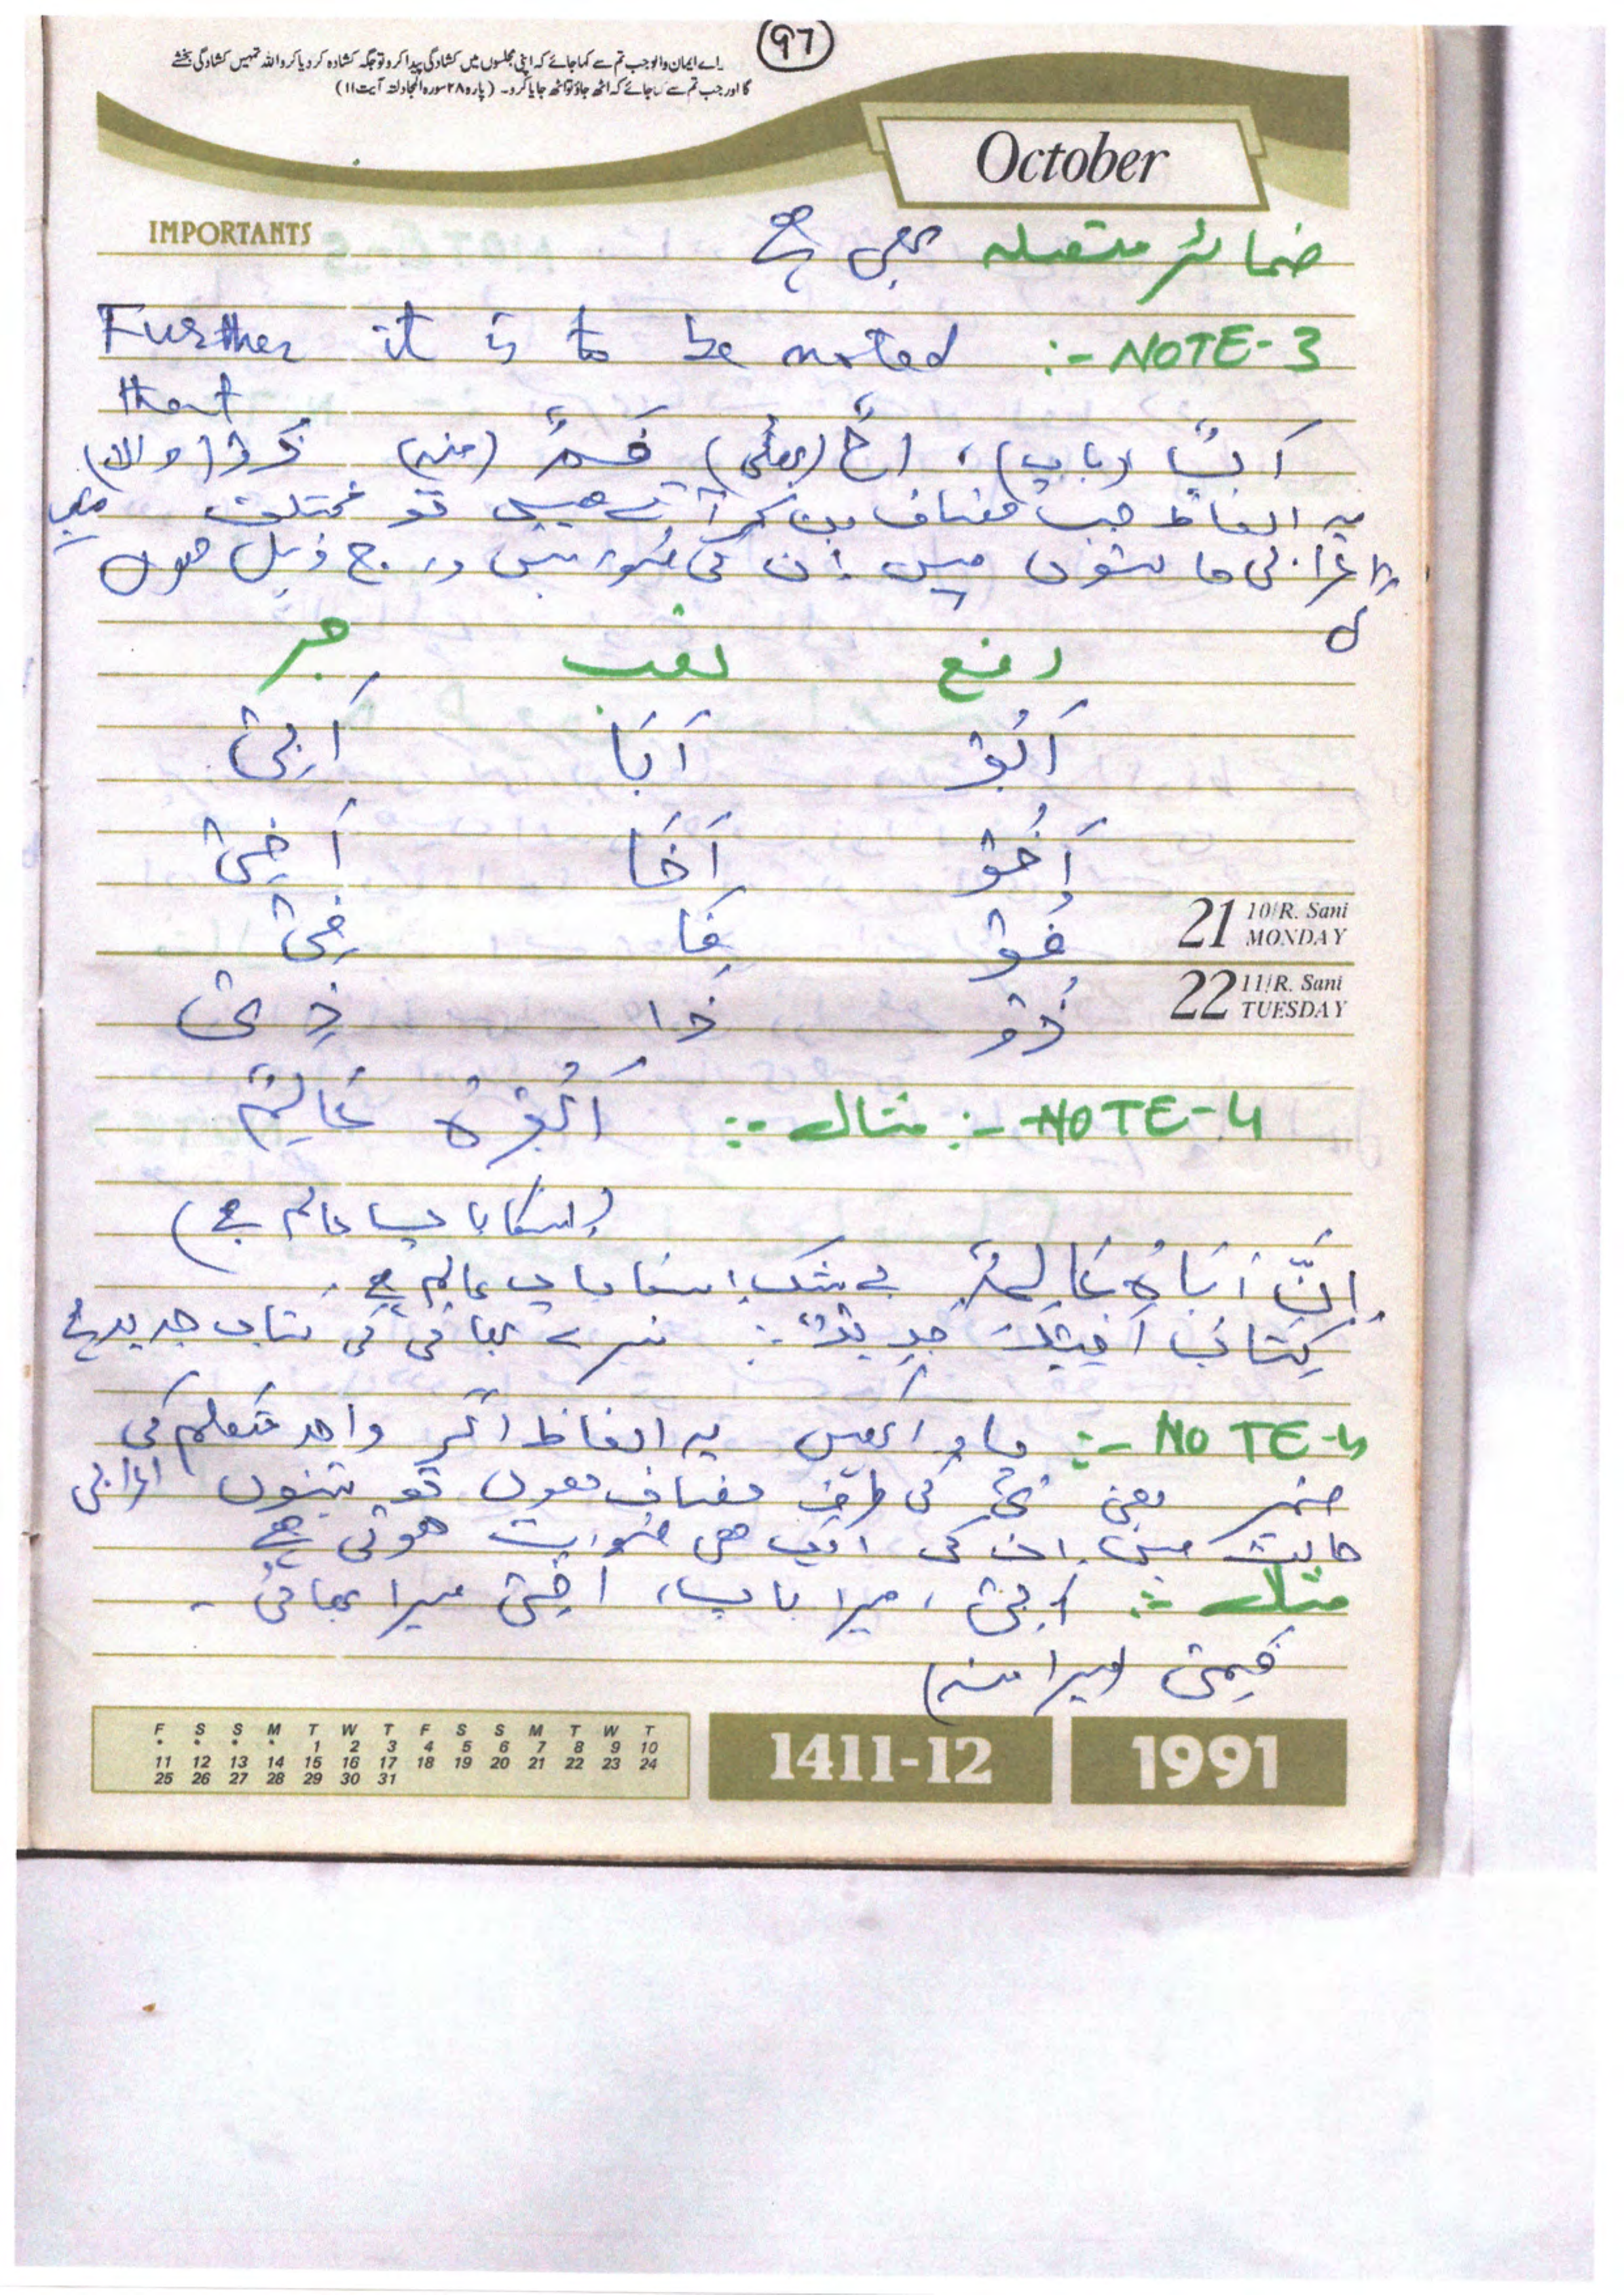 97
اے ایمان والو جب تم سے کہا جائے کہ اپنی مجلسوں میں کشادگی پیدا کرو تو جگہ کشادہ کر دیا کرو اللہ تمہیں کشادگی بخشے
گا اور جب تم سے کہا جائے کہ اٹھ جاؤ تو اٹھ جایا کرو۔ (پارہ ۲۸ سورہ المجادلتہ آیت ۱۱)
October
IMPORTANTS
ضمائر متصلہ بھی ہے
NOTE-3 :- Further it is to be noted
that
اَبٌ (باپ)، اخٌ (بھائی) فَمٌ (منہ) ذُوْ (والا)
یہ الفاظ جب مضاف بن کر آتے ھیں تو مختلف
اعرابی حالتوں میں ان کی صورتیں درج ذیل ھوں
گی
رفع نصب جر
اَبُوْ اَبَا اَبِىْ
اَخُوْ اَخَا اَخِىْ
فُوْ فَا فِىْ
ذُوْ ذَا ذِىْ
21 10/R. Sani MONDAY
22 11/R. Sani TUESDAY
NOTE-4 :- مثال :- اَبُوْهُ عَالِمٌ
(اسکا باپ عالم ہے)
اِنَّ اَبَاهُ عَالِمٌ بے شک اسکا باپ عالم ہے۔
كِتَابُ اَخِيْكَ جَدِيْدٌ : تیرے بھائی کی کتاب جدید ہے
NOTE-5 :- یاد رکھیں یہ الفاظ اگر واحد متکلم کی
ضمیر یعنی ىْ کی طرف مضاف ھوں تو تینوں اعرابی
حالت میں ان کی ایک ھی صورت ھوتی ہے
مثال :- اَبِىْ ، میرا باپ، اَخِىْ میرا بھائی ۔
فَمِىْ (میرا منہ)
F S S M T W T F S S M T W T
* * * * 1 2 3 4 5 6 7 8 9 10
11 12 13 14 15 16 17 18 19 20 21 22 23 24
25 26 27 28 29 30 31
1411-12
1991